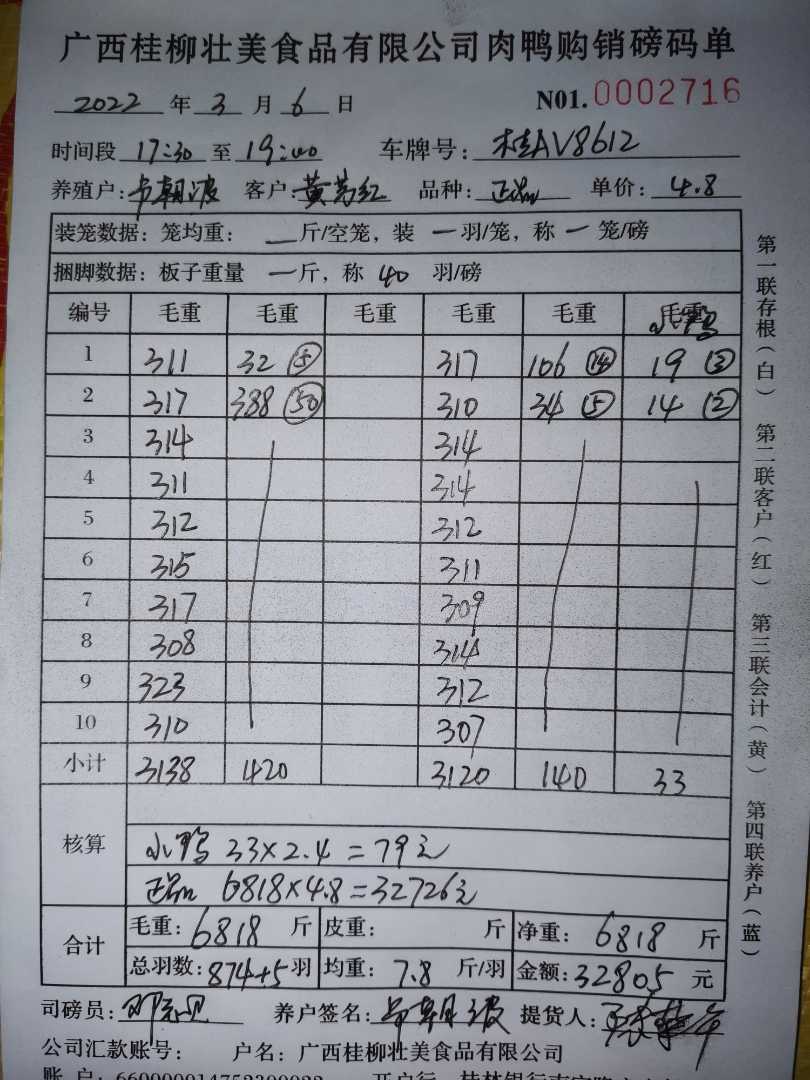 广西桂柳壮美食品有限公司肉鸭购销磅码单
2022 年 3 月 6 日 N01.0002716
时间段 17:30 至 19:40 车牌号: 桂AV8612
养殖户: 朝波 客户: 黄芳红 品种: 正品 单价: 4.8
装笼数据: 笼均重: 一 斤/空笼, 装 一 羽/笼, 称 一 笼/磅
捆脚数据: 板子重量 一 斤, 称 40 羽/磅
编号 毛重 毛重 毛重 毛重 毛重 毛重 小鸭
1 311 32 ⑤ 317 106 ⑭ 19 ③
2 317 388 ㊿ 310 34 ⑤ 14 ②
3 314 314
4 311 314
5 312 312
6 315 311
7 317 309
8 308 314
9 323 312
10 310 307
小计 3138 420 3120 140 33
核算
小鸭 33×2.4=79元
正品 6818×4.8=32726元
合计
毛重: 6818 斤 皮重: 斤 净重: 6818 斤
总羽数: 874+5 羽 均重: 7.8 斤/羽 金额: 32805 元
司磅员: 邓 养户签名: 朝波 提货人:
公司汇款账号: 户名: 广西桂柳壮美食品有限公司
第一联存根(白) 第二联客户(红) 第三联会计(黄) 第四联养户(蓝)